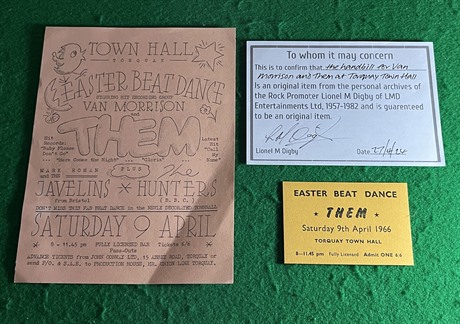 TOWN HALL
TORQUAY
EASTER BEAT DANCE
STARRING HIT RECORDING GROUP
VAN MORRISON
and
THEM
Hit
Records:
"Baby Please
Don't Go"
"Here Comes the Night"
"Gloria"
Latest
Hit
"Call
My
Name"
PLUS
MARK ROMAN
and THE
JAVELINS
from Bristol
The
HUNTERS
(B.B.C.)
DON'T MISS THIS FAB BEAT DANCE in the NEWLY DECORATED TOWNHALL
SATURDAY 9 APRIL
8 - 11.45 pm FULLY LICENSED BAR Tickets 6/6
Pass-Outs
ADVANCE TICKETS from JOHN CONWAY LTD, 45 ABBEY ROAD, TORQUAY or
send P/O. & S.A.E. to PRODUCTION HOUSE, UNION LANE TORQUAY.
To whom it may concern
This is to confirm that the handbill for Van
Morrison and Them at Torquay Town Hall
Is an original item from the personal archives of
the Rock Promoter Lionel M Digby of LMD
Entertainments Ltd, 1957-1982 and is guarenteed
to be an original item.
Lionel M Digby
Date
EASTER BEAT DANCE
★ THEM ★
Saturday 9th April 1966
TORQUAY TOWN HALL
8—11.45 pm Fully Licensed Admit ONE 6/6